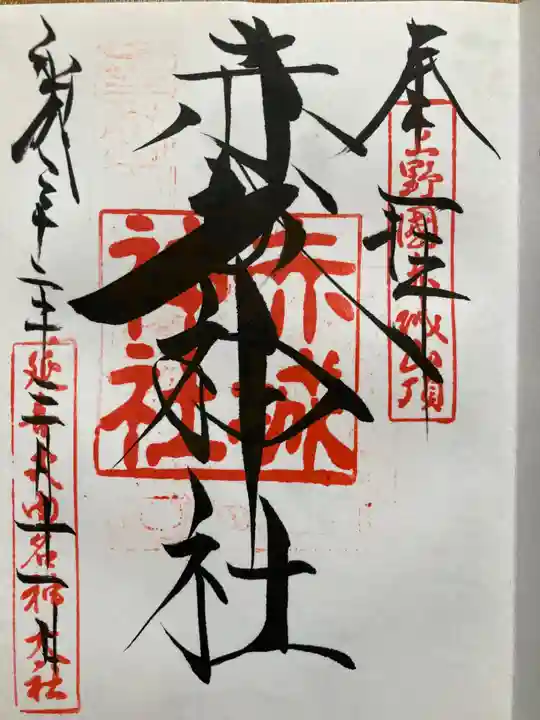 奉拝
上野國赤城山頂
赤城神社
赤城神社
延喜式内名神大社